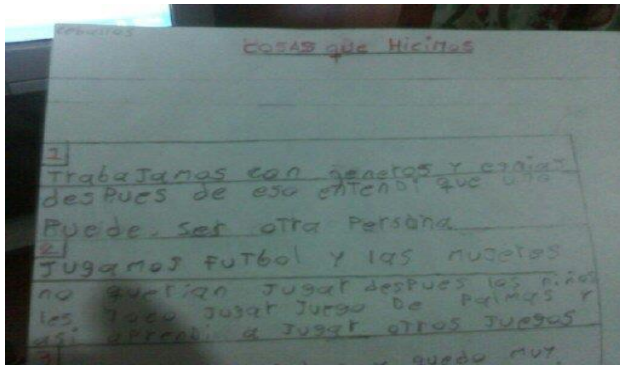 ceballos
COSAS que Hicimos
1
TrabaJamos con generos Y
desPues de eso entendi que uno
Puede. ser otra Persona
2
Jugamos FUTbol Y las mujeres
no querian Jugar desPues los niños
les Toco Jugar Juego De Palmas Y
asi aprendi a Jugar oTros Juegos
3
quedo muy